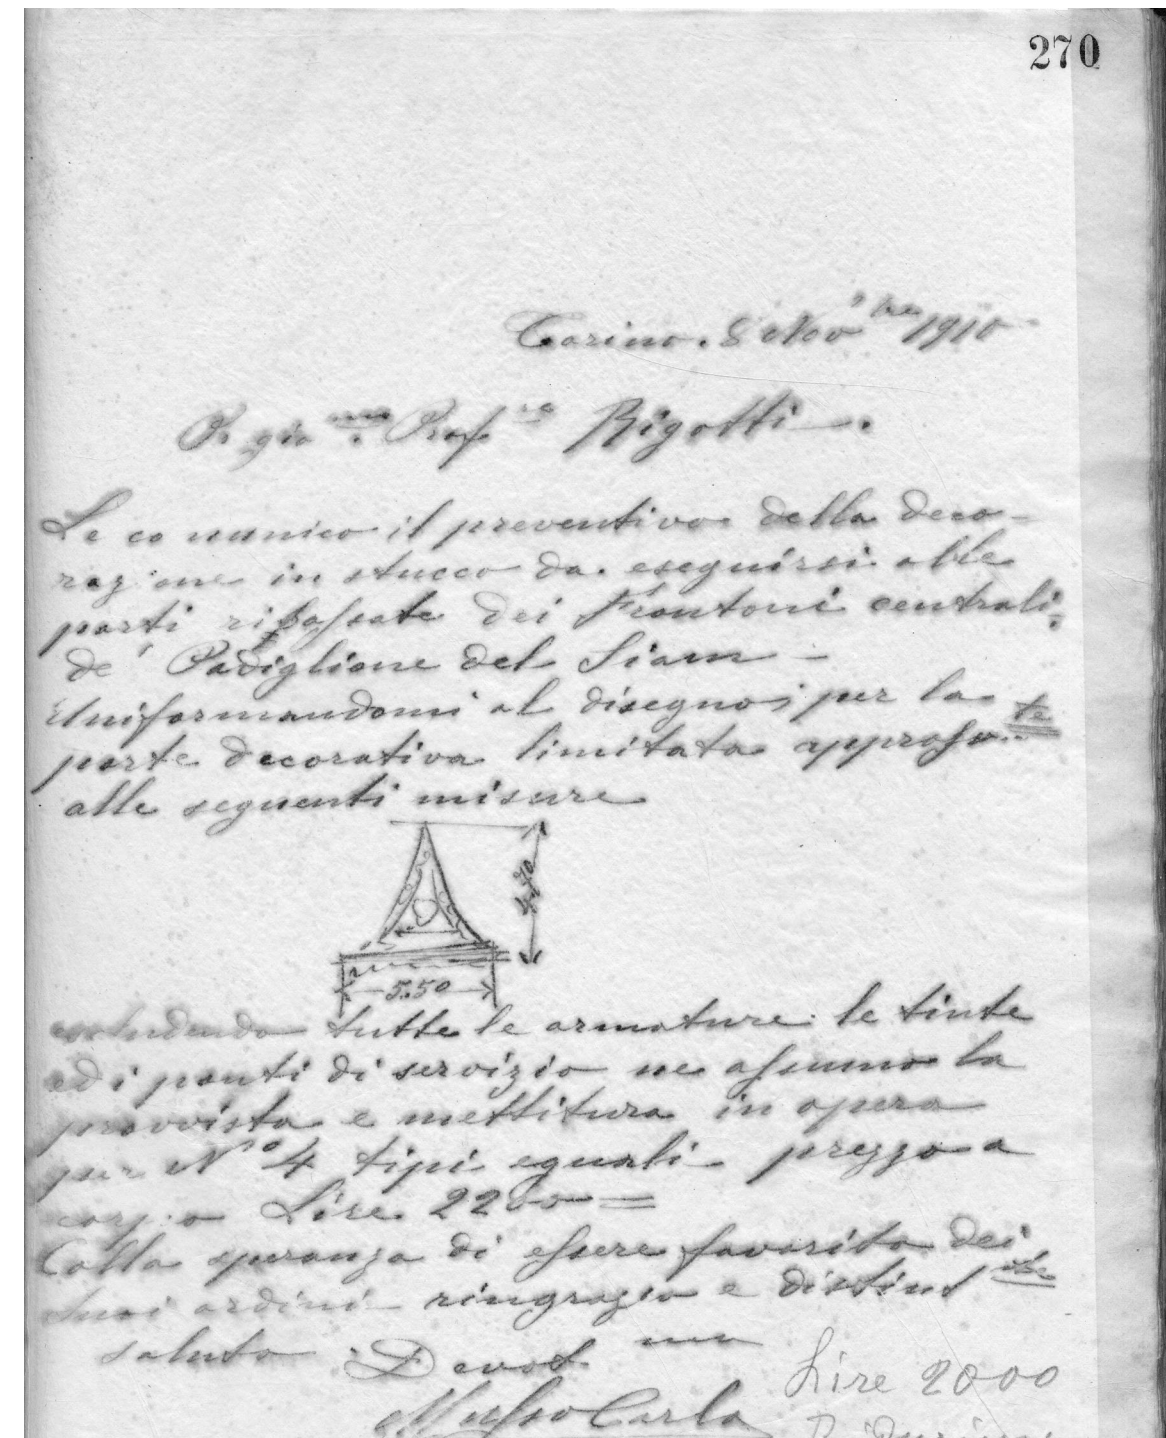 270
Torino. 8 Nov.bre 1910
Pregiamo. Profre Rigotti.
Le comunico il preventivo della deco-
razione in stucco da eseguirsi alle
parti ribassate dei Frontoni centrali
de' Padiglione del Siam -
Uniformandomi al disegno, per la
parte decorativa limitata approssivte
alle seguenti misure
4,70
5.50
escludendo tutte le armature le tinte
ed i ponti di servizio ne assumo la
provvista e mettitura in opera
per No 4 tipi eguali prezzo a
corpo Lire 2200 =
Colla speranza di essere favorito dei
suoi ordini ringrazio e distintte
saluto Devotmo
Musso Carlo
Lire 2000